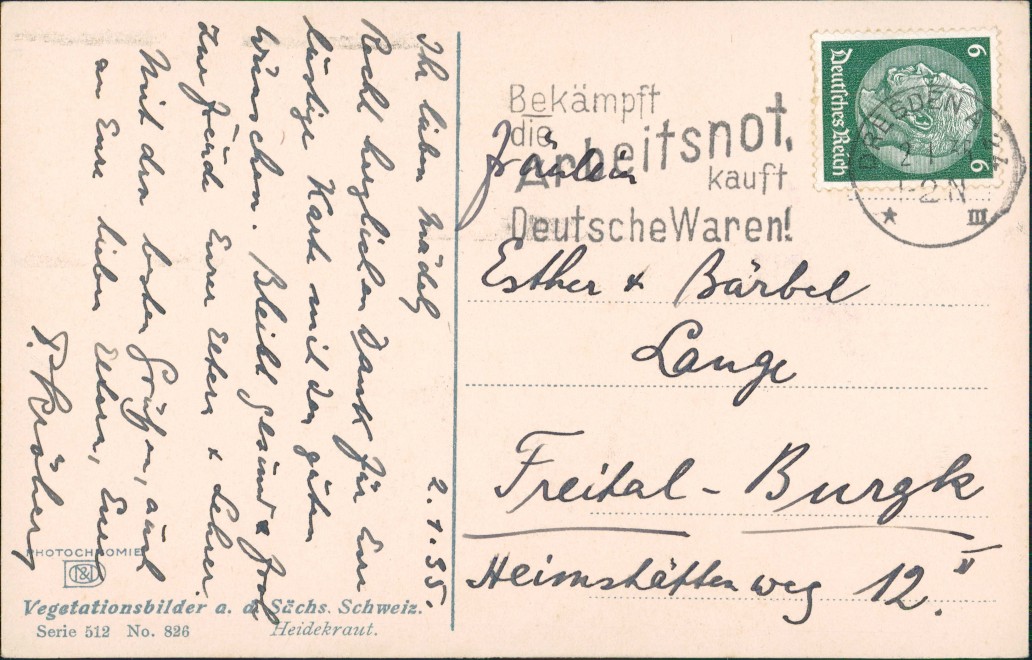 2.1.35.
Ihr lieben Mädels
Recht herzlichen Dank für Eure
lustige Karte mit den guten
Wünschen. Bleibt gesund & froh
zur Freude Eurer Eltern & Lehrer.
Mit den besten Grüßen, auch
an Eure lieben Eltern, Euer
PHOTOCHROMIE
Vegetationsbilder a. d. Sächs. Schweiz.
Serie 512 No. 826 Heidekraut.
Bekämpft
die
Arbeitsnot,
kauft
Deutsche Waren!
Deutsches Reich
6
6
DRESDEN
III
Fräulein
Esther & Bärbel
Lange
Freital - Burgk
Heimstättenweg 12. II